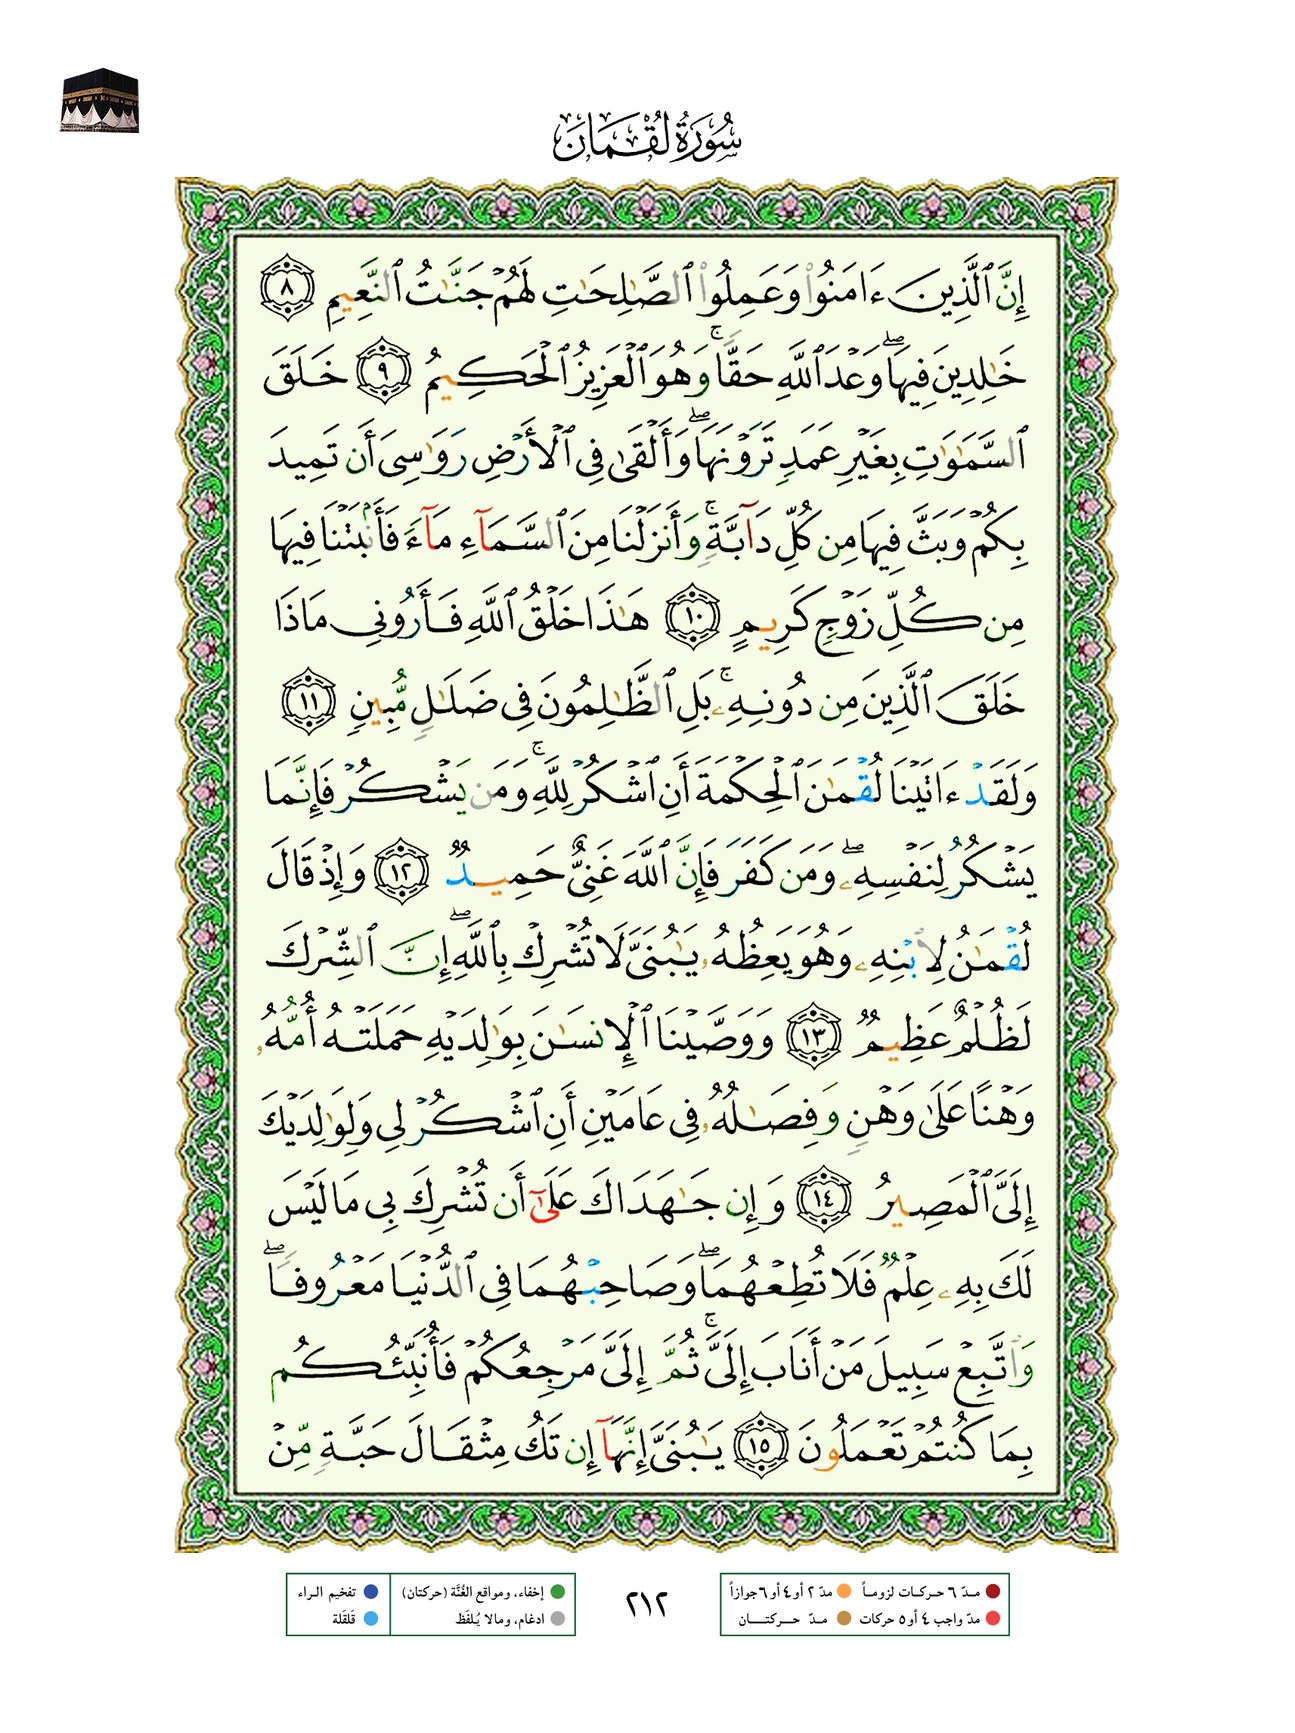 سُورَةُ لُقْمَانَ
إِنَّ ٱلَّذِينَ ءَامَنُوا۟ وَعَمِلُوا۟ ٱلصَّـٰلِحَـٰتِ لَهُمْ جَنَّـٰتُ ٱلنَّعِيمِ ٨
خَـٰلِدِينَ فِيهَا ۖ وَعْدَ ٱللَّهِ حَقًّا ۚ وَهُوَ ٱلْعَزِيزُ ٱلْحَكِيمُ ٩ خَلَقَ
ٱلسَّمَـٰوَٰتِ بِغَيْرِ عَمَدٍ تَرَوْنَهَا ۖ وَأَلْقَىٰ فِى ٱلْأَرْضِ رَوَٰسِىَ أَن تَمِيدَ
بِكُمْ وَبَثَّ فِيهَا مِن كُلِّ دَآبَّةٍ ۚ وَأَنزَلْنَا مِنَ ٱلسَّمَآءِ مَآءً فَأَنۢبَتْنَا فِيهَا
مِن كُلِّ زَوْجٍ كَرِيمٍ ١٠ هَـٰذَا خَلْقُ ٱللَّهِ فَأَرُونِى مَاذَا
خَلَقَ ٱلَّذِينَ مِن دُونِهِۦ ۚ بَلِ ٱلظَّـٰلِمُونَ فِى ضَلَـٰلٍ مُّبِينٍ ١١
وَلَقَدْ ءَاتَيْنَا لُقْمَـٰنَ ٱلْحِكْمَةَ أَنِ ٱشْكُرْ لِلَّهِ ۚ وَمَن يَشْكُرْ فَإِنَّمَا
يَشْكُرُ لِنَفْسِهِۦ ۖ وَمَن كَفَرَ فَإِنَّ ٱللَّهَ غَنِىٌّ حَمِيدٌ ١٢ وَإِذْ قَالَ
لُقْمَـٰنُ لِٱبْنِهِۦ وَهُوَ يَعِظُهُۥ يَـٰبُنَىَّ لَا تُشْرِكْ بِٱللَّهِ ۖ إِنَّ ٱلشِّرْكَ
لَظُلْمٌ عَظِيمٌ ١٣ وَوَصَّيْنَا ٱلْإِنسَـٰنَ بِوَٰلِدَيْهِ حَمَلَتْهُ أُمُّهُۥ
وَهْنًا عَلَىٰ وَهْنٍ وَفِصَـٰلُهُۥ فِى عَامَيْنِ أَنِ ٱشْكُرْ لِى وَلِوَٰلِدَيْكَ
إِلَىَّ ٱلْمَصِيرُ ١٤ وَإِن جَـٰهَدَاكَ عَلَىٰٓ أَن تُشْرِكَ بِى مَا لَيْسَ
لَكَ بِهِۦ عِلْمٌ فَلَا تُطِعْهُمَا ۖ وَصَاحِبْهُمَا فِى ٱلدُّنْيَا مَعْرُوفًا ۖ
وَٱتَّبِعْ سَبِيلَ مَنْ أَنَابَ إِلَىَّ ۚ ثُمَّ إِلَىَّ مَرْجِعُكُمْ فَأُنَبِّئُكُم
بِمَا كُنتُمْ تَعْمَلُونَ ١٥ يَـٰبُنَىَّ إِنَّهَآ إِن تَكُ مِثْقَالَ حَبَّةٍ مِّنْ
مدّ ٦ حركات لزوماً
مدّ ٢ أو ٤ أو ٦ جوازاً
مدّ واجب ٤ أو ٥ حركات
مدّ حركتان
٢١٢
إخفاء، ومواقع الغُنَّة (حركتان)
تفخيم الراء
ادغام، ومالا يُلفَظ
قلقلة